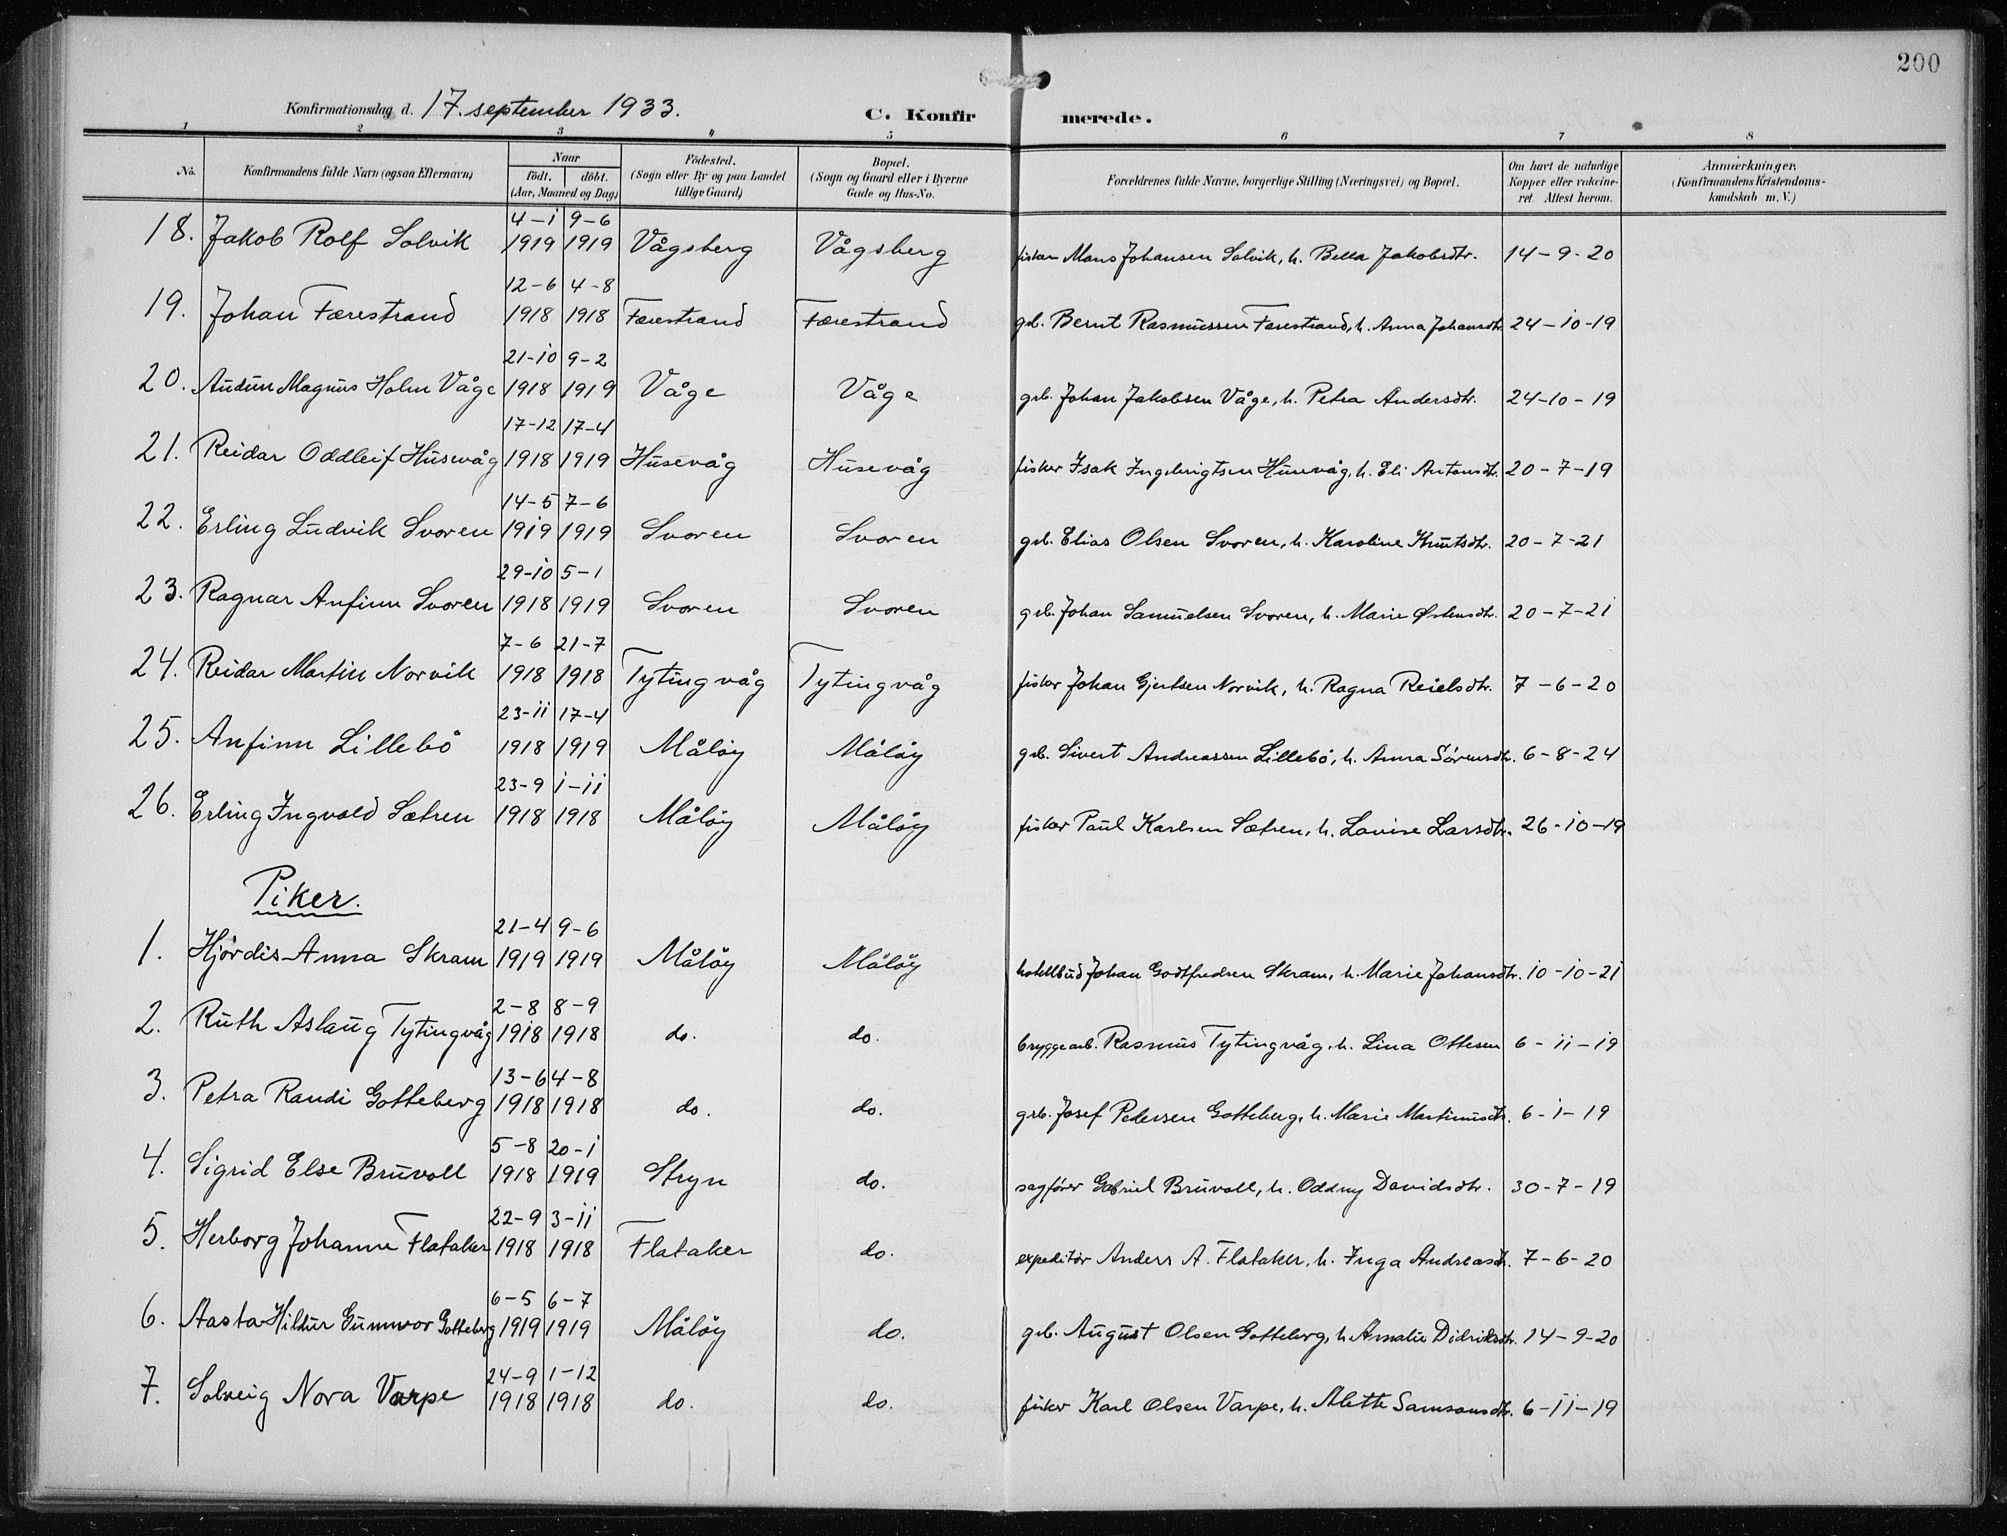 200
Konfirmationsdag d. 17. september 1933.
C. Konfirmerede.
1 2 3 4 5 6 7 8
No. Konfirmandens fulde Navn (ogsaa Efternavn) Naar Født. døbt. (Aar, Maaned og Dag) Fødested. (Sogn eller By og paa Landet tillige Gaard) Bopæl. (Sogn og Gaard eller i Byerne Gade og Hus-No. Forældrenes fulde Navne, borgerlige Stilling (Næringsvei) og Bopæl. Om havt de naturlige Kopper eller vakcineret. Attest herom. Anmærkninger. (Konfirmandens Kristendomskundskab m. V.)
18. Jakob Rolf Solvik 4-1 1919 9-6 1919 Vågsberg Vågsberg fisker Mons Johansen Solvik, h. Bella Jakobsdtr. 14-9-20
19. Johan Færestrand 12-6 1918 4-8 1918 Færestrand Færestrand gsb. Bernt Rasmussen Færestrand, h. Anna Johansdtr. 24-10-19
20. Audun Magnus Holm Våge 21-10 1918 9-2 1919 Våge Våge gsb. Johan Jakobsen Våge, h. Petra Andersdtr. 24-10-19
21. Reidar Oddleif Husevåg 17-12 1918 17-4 1919 Husevåg Husevåg fisker Isak Ingebrigtsen Husevåg, h. Eli Antonsdtr. 20-7-19
22. Erling Ludvik Svoren 14-5 1919 7-6 1919 Svoren Svoren gsb. Elias Olsen Svoren, h. Karoline Knutsdtr. 20-7-21
23. Ragnar Anfinn Svoren 29-10 1918 5-1 1919 Svoren Svoren gsb. Johan Samuelsen Svoren, h. Marie Østensdtr. 20-7-21
24. Reidar Martin Norvik 7-6 1918 21-7 1918 Tytingvåg Tytingvåg fisker Johan Gjertsen Norvik, h. Ragna Reielsdtr. 7-6-20
25. Anfinn Lillebö 23-11 1918 17-4 1919 Målöy Målöy gsb. Sivert Andreassen Lillebö, h. Anna Sörensdtr. 6-8-24
26. Erling Ingvald Sætren 23-9 1918 1-11 1918 Målöy Målöy fisker Paul Karlsen Sætren, h. Lovise Larsdtr. 26-10-19
Piker.
1. Hjördis Anna Skram 21-4 1919 9-6 1919 Målöy Målöy hotellbud Johan Godtfredsen Skram, h. Marie Johansdtr. 10-10-21
2. Ruth Aslaug Tytingvåg 2-8 1918 8-9 1918 do. do. bryggearb. Rasmus Tytingvåg, h. Lina Ottesen 6-11-19
3. Petra Randi Gotteberg 13-6 1918 4-8 1918 do. do. gsb. Josef Pedersen Gotteberg, h. Marie Martinusdtr. 6-1-19
4. Sigrid Else Bruvoll 5-8 1918 20-1 1919 Stryn do. sagförer Gabriel Bruvoll, h. Oddny Davidsdtr. 30-7-19
5. Herborg Johanne Flataker 22-9 1918 3-11 1918 Flataker do. expeditör Anders A. Flataker, h. Inga Andreasdtr. 7-6-20
6. Aasta Hildur Gunnvor Gotteberg 6-5 1919 6-7 1919 Målöy do. gsb. August Olsen Gotteberg, h. Amalie Didriksdtr. 14-9-20
7. Solveig Nora Varpe 24-9 1918 1-12 1918 do. do. fisker Karl Olsen Varpe, h. Alette Samsonsdtr. 6-11-19